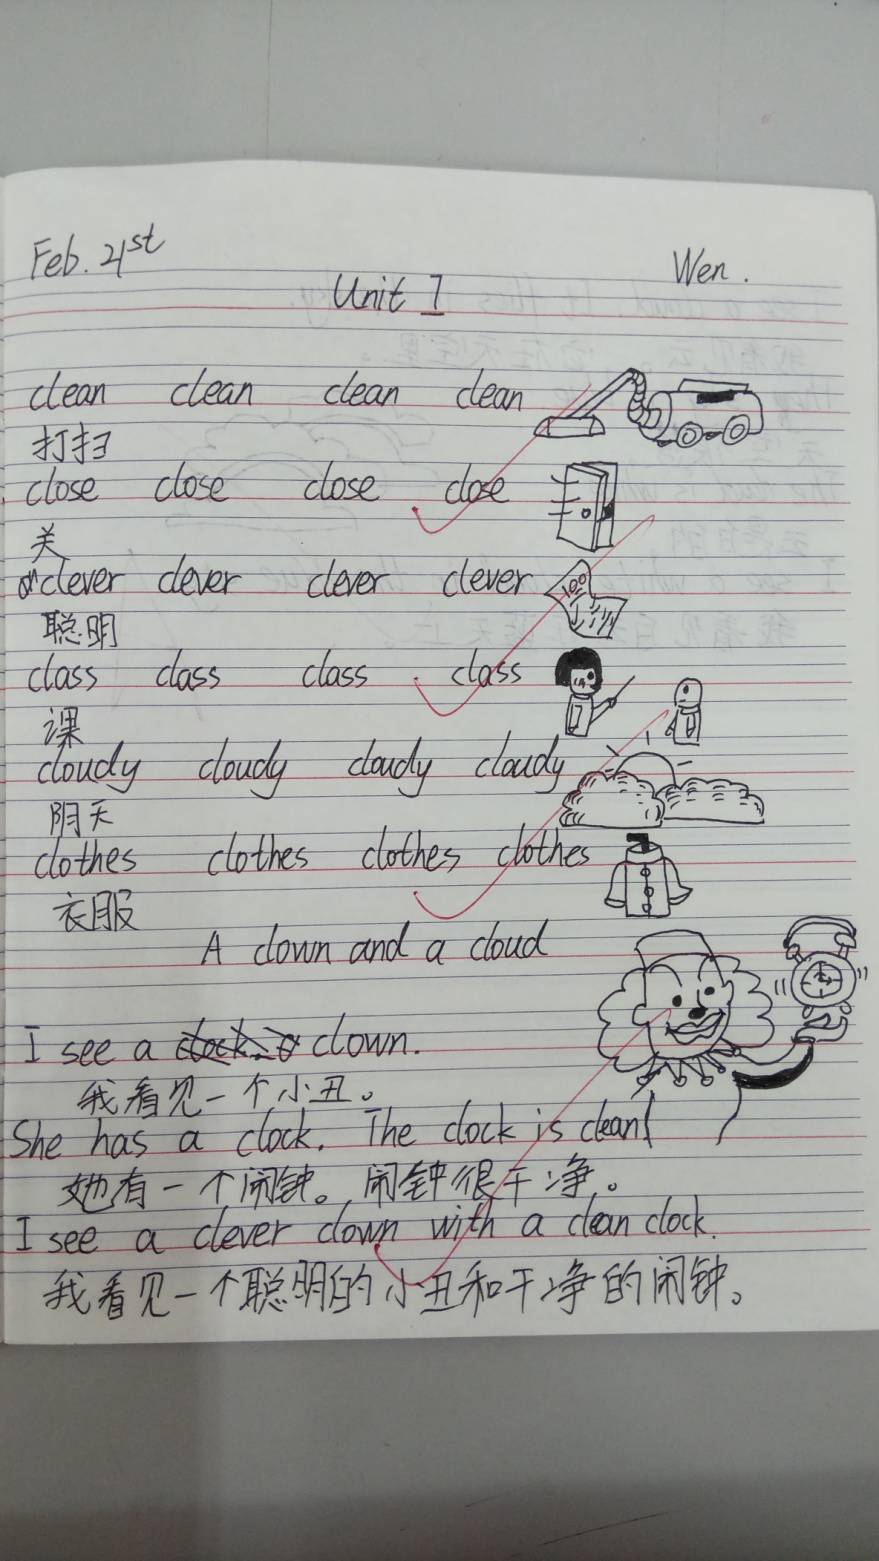 Feb. 21st Wen.
Unit 1
clean clean clean clean
打扫
close close close close
关
clever clever clever clever
100
聪明
class class class class
课
cloudy cloudy cloudy cloudy
阴天
clothes clothes clothes clothes
衣服
A clown and a cloud
I see a clown.
我看见一个小丑。
She has a clock. The clock is clean!
她有一个闹钟。闹钟很干净。
I see a clever clown with a clean clock.
我看见一个聪明的小丑和干净的闹钟。